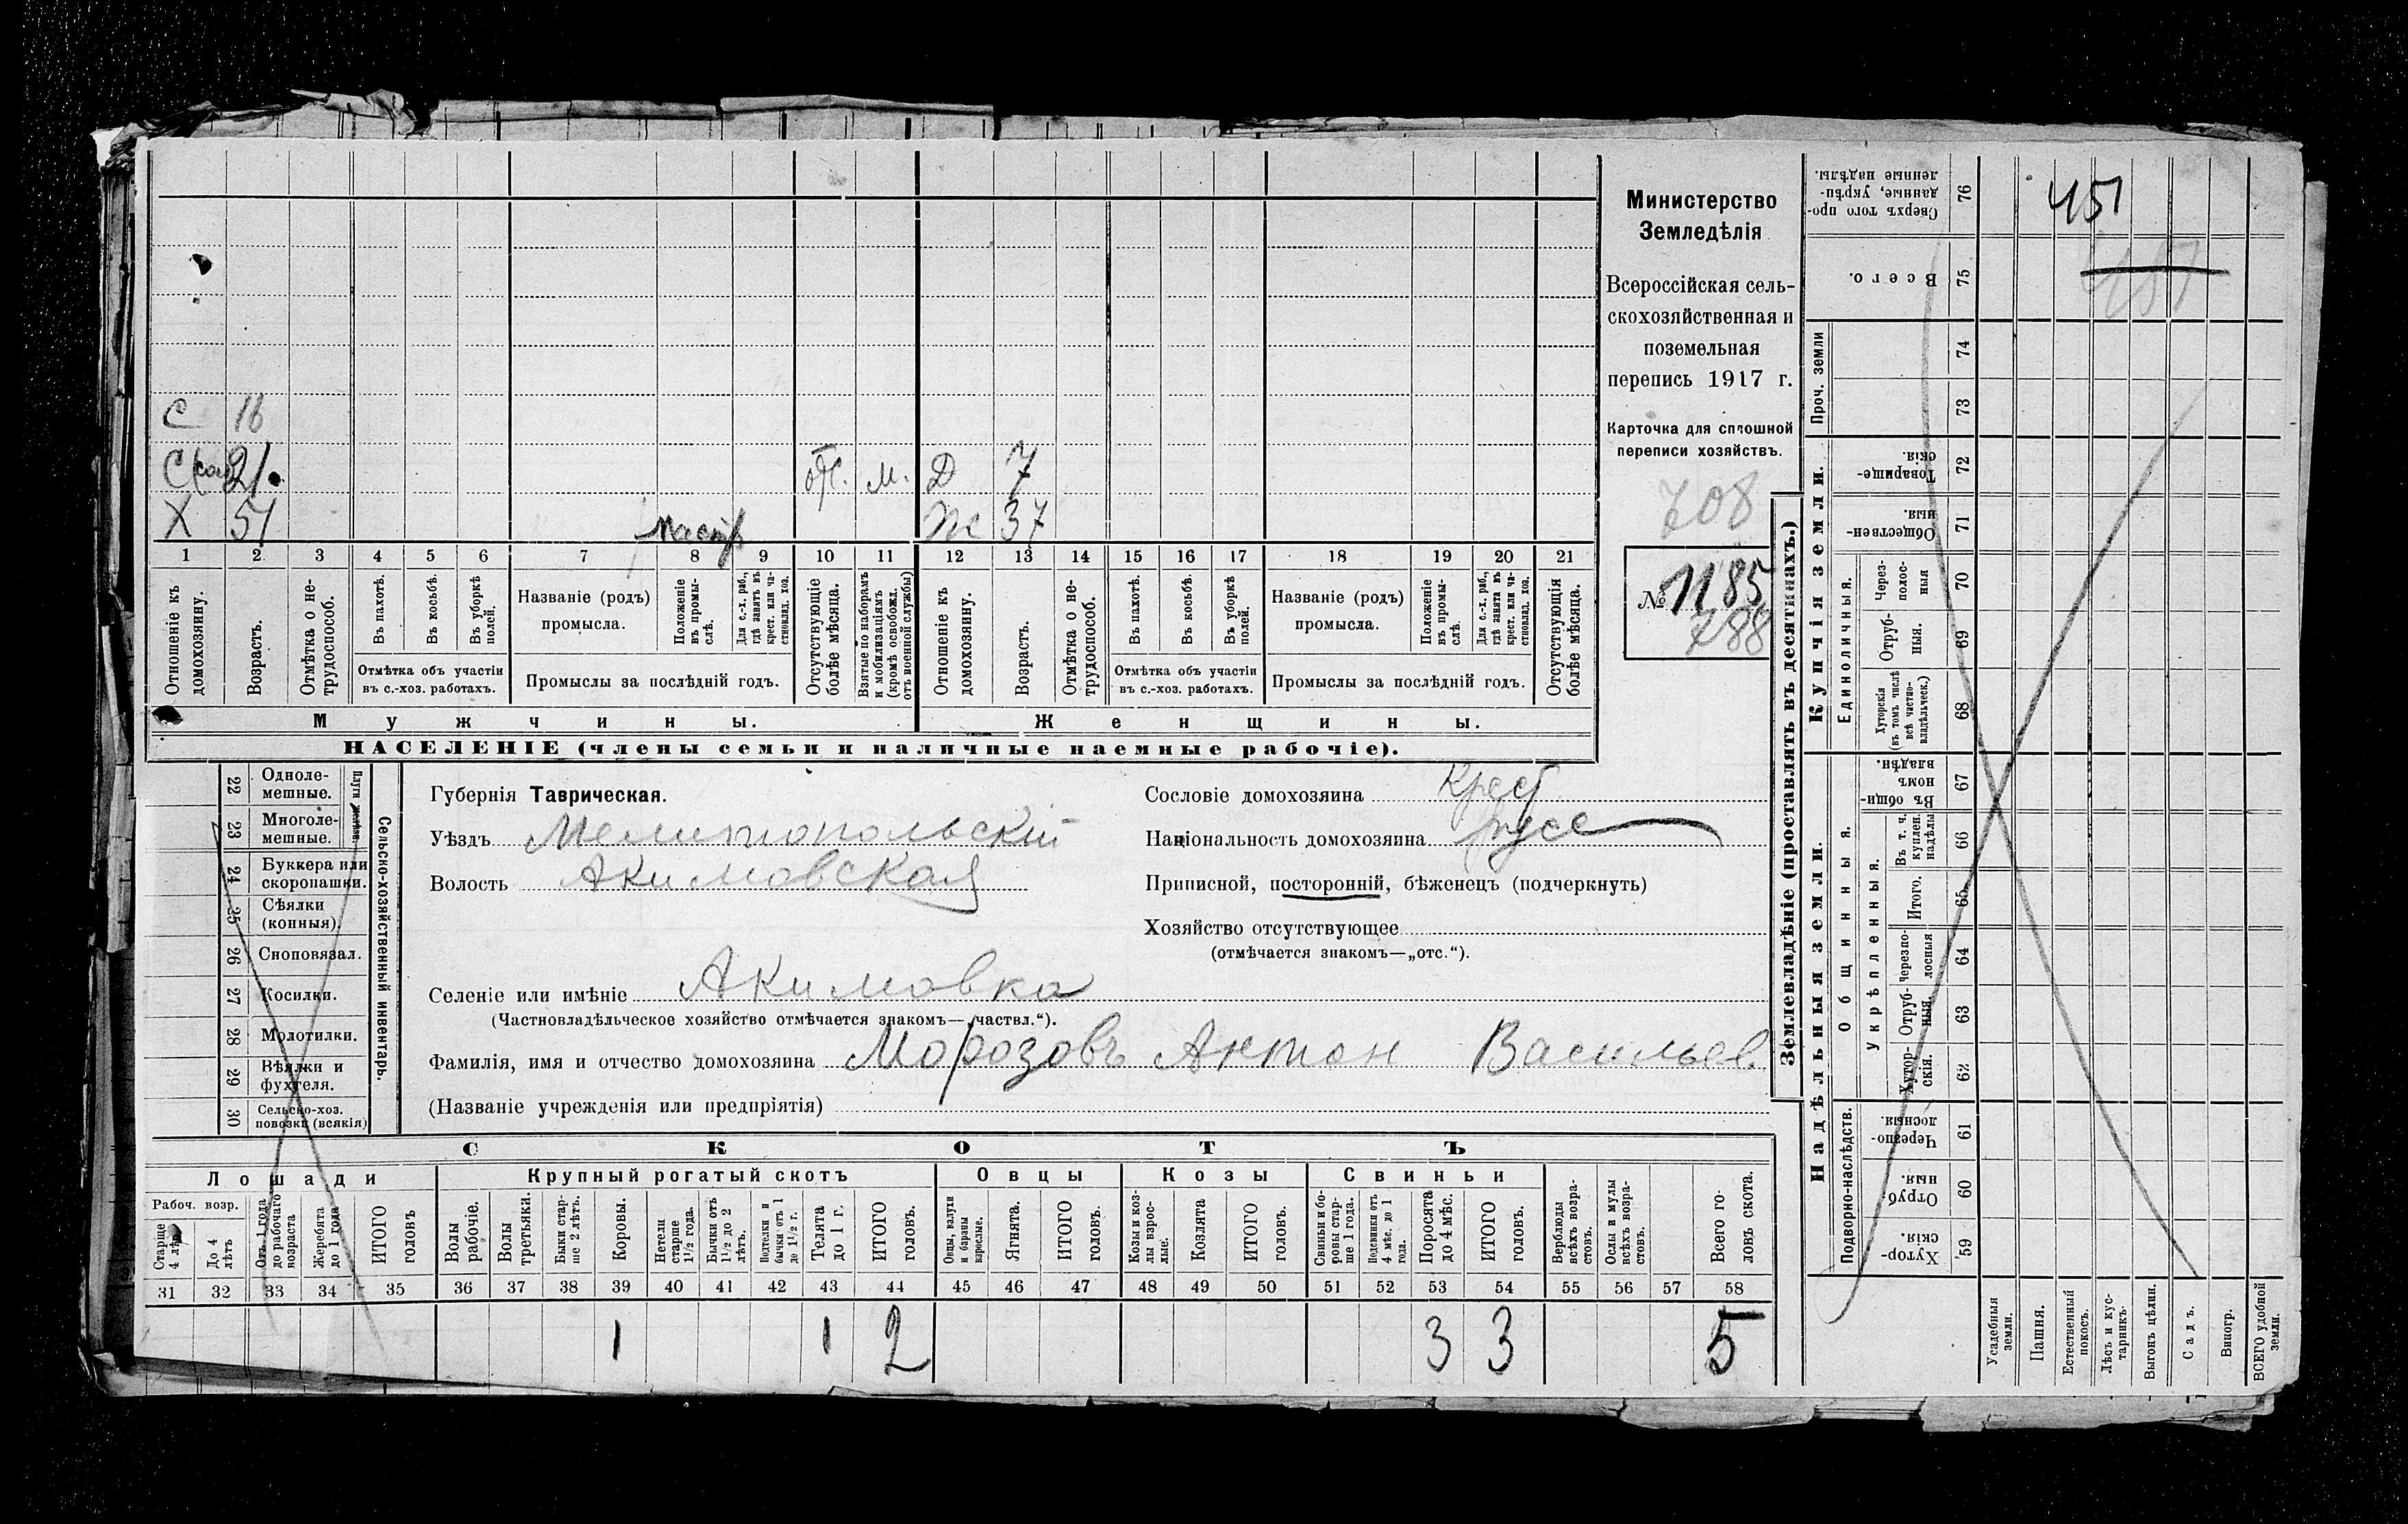 С 16
С 21. отс. м. Д 7
Х 51 Ж 37
1 2 3 4 5 6 7 8 9 10 11 12 13 14 15 16 17 18 19 20 21
Отношеніе къ домохозяину.
Возрастъ.
Отмѣтка о не-трудоспособ.
Въ пахотѣ.
Въ косьбѣ.
Въ уборкѣ полей.
Отмѣтка объ участіи
въ с.-хоз. работахъ.
Названіе (родъ)
промысла.
Положеніе въ промы-слѣ.
Для с.-х. раб., гдѣ занятъ въ крест. или ча-стновлад. хоз.
Промыслы за послѣдній годъ.
Отсутствующіе болѣе мѣсяца.
Взятые по наборамъ и мобилизаціямъ (кромѣ освобожд. отъ военной службы)
Отношеніе къ домохозяину.
Возрастъ.
Отмѣтка о не-трудоспособ.
Въ пахотѣ.
Въ косьбѣ.
Въ уборкѣ полей.
Отмѣтка объ участіи
въ с.-хоз. работахъ.
Названіе (родъ)
промысла.
Положеніе въ промы-слѣ.
Для с.-х. раб., гдѣ занята въ крест. или ча-стновлад. хоз.
Промыслы за послѣдній годъ.
Отсутствующія болѣе мѣсяца.
Мужчины. Женщины.
НАСЕЛЕНІЕ (члены семьи и наличные наемные рабочіе).
Министерство
Земледѣлія
Всероссійская сель-
скохозяйственная и
поземельная
перепись 1917 г.
Карточка для сплошной
переписи хозяйствъ.
708
№ 1185
788
22 Одноле-мешные.
23 Многоле-мешные.
24 Буккера или скоропашки.
25 Сѣялки (конныя).
26 Сноповязал.
27 Косилки.
28 Молотилки.
29 Вѣялки и фухтеля.
30 Сельско-хоз. повозки (всякія)
Сельско-хозяйственный инвентарь.
Губернія Таврическая.
Уѣздъ Мелитопольскій
Волость Акимовская
Селеніе или имѣніе Акимовка
(Частновладѣльческое хозяйство отмѣчается знакомъ—„частвл.“).
Фамилія, имя и отчество домохозяина Морозовъ Антон Васильев.
(Названіе учрежденія или предпріятія)
Сословіе домохозяина Крест
Національность домохозяина русс
Приписной, посторонній, бѣженецъ (подчеркнуть)
Хозяйство отсутствующее
(отмѣчается знакомъ—„отс.“).
СКОТЪ
Лошади Крупный рогатый скотъ Овцы Козы Свиньи
Рабоч. возр.
Старше 4 лѣтъ
До 4 лѣтъ
Отъ 1 года до рабочаго возраста
Жеребята до 1 года
ИТОГО головъ
Волы рабочіе.
Волы третьяки.
Быки стар-ше 2 лѣтъ.
Коровы.
Нетели старше 1½ года.
Бычки отъ 1½ до 2 лѣтъ.
Подтелки и бычки отъ 1 до 1½ г.
Телята до 1 г.
ИТОГО головъ.
Овцы, валухи и бараны взрослые.
Ягнята.
ИТОГО головъ.
Козы и коз-лы взрос-лые.
Козлята
ИТОГО головъ.
Свиньи и бо-ровы стар-ше 1 года.
Подсвинки отъ 4 мѣс. до 1 года.
Поросята до 4 мѣс.
ИТОГО головъ.
Верблюды всѣхъ возра-стовъ.
Ослы и мулы всѣхъ возра-стовъ.
Всего го-ловъ скота.
31 32 33 34 35 36 37 38 39 40 41 42 43 44 45 46 47 48 49 50 51 52 53 54 55 56 57 58
1 1 2 3 3 5
Землевладѣніе (проставлять въ десятинахъ.)
Купчія земли.
Надѣльныя земли.
Сверхъ того про-данные, укрѣп-ленные надѣлы. 76
451
Всего. 75
Проч. земли 74 73
Товарище-скія. 72
Обществен-ныя. 71
Единоличныя.
Через-полос-ныя 70
Отруб-ныя. 69
Хуторскія (въ томъ числѣ всѣ частно-владѣльческ.) 68
Въ общи-номъ владѣн. 67
Общинныя.
Укрѣпленныя.
Въ т. ч. куплен. надѣлы 66
Итого. 65
Черезпо-лосныя 64
Отруб-ныя. 63
Хутор-скія. 62
Подворно-наслѣдств.
Черезпо-лосныя. 61
Отруб-ныя. 60
Хутор-скія. 59
Усадебныя земли.
Пашня.
Естественный покосъ.
Лѣсъ и кус-тарникъ.
Выгонъ цѣлин.
Садъ.
Виногр.
ВСЕГО удобной земли.